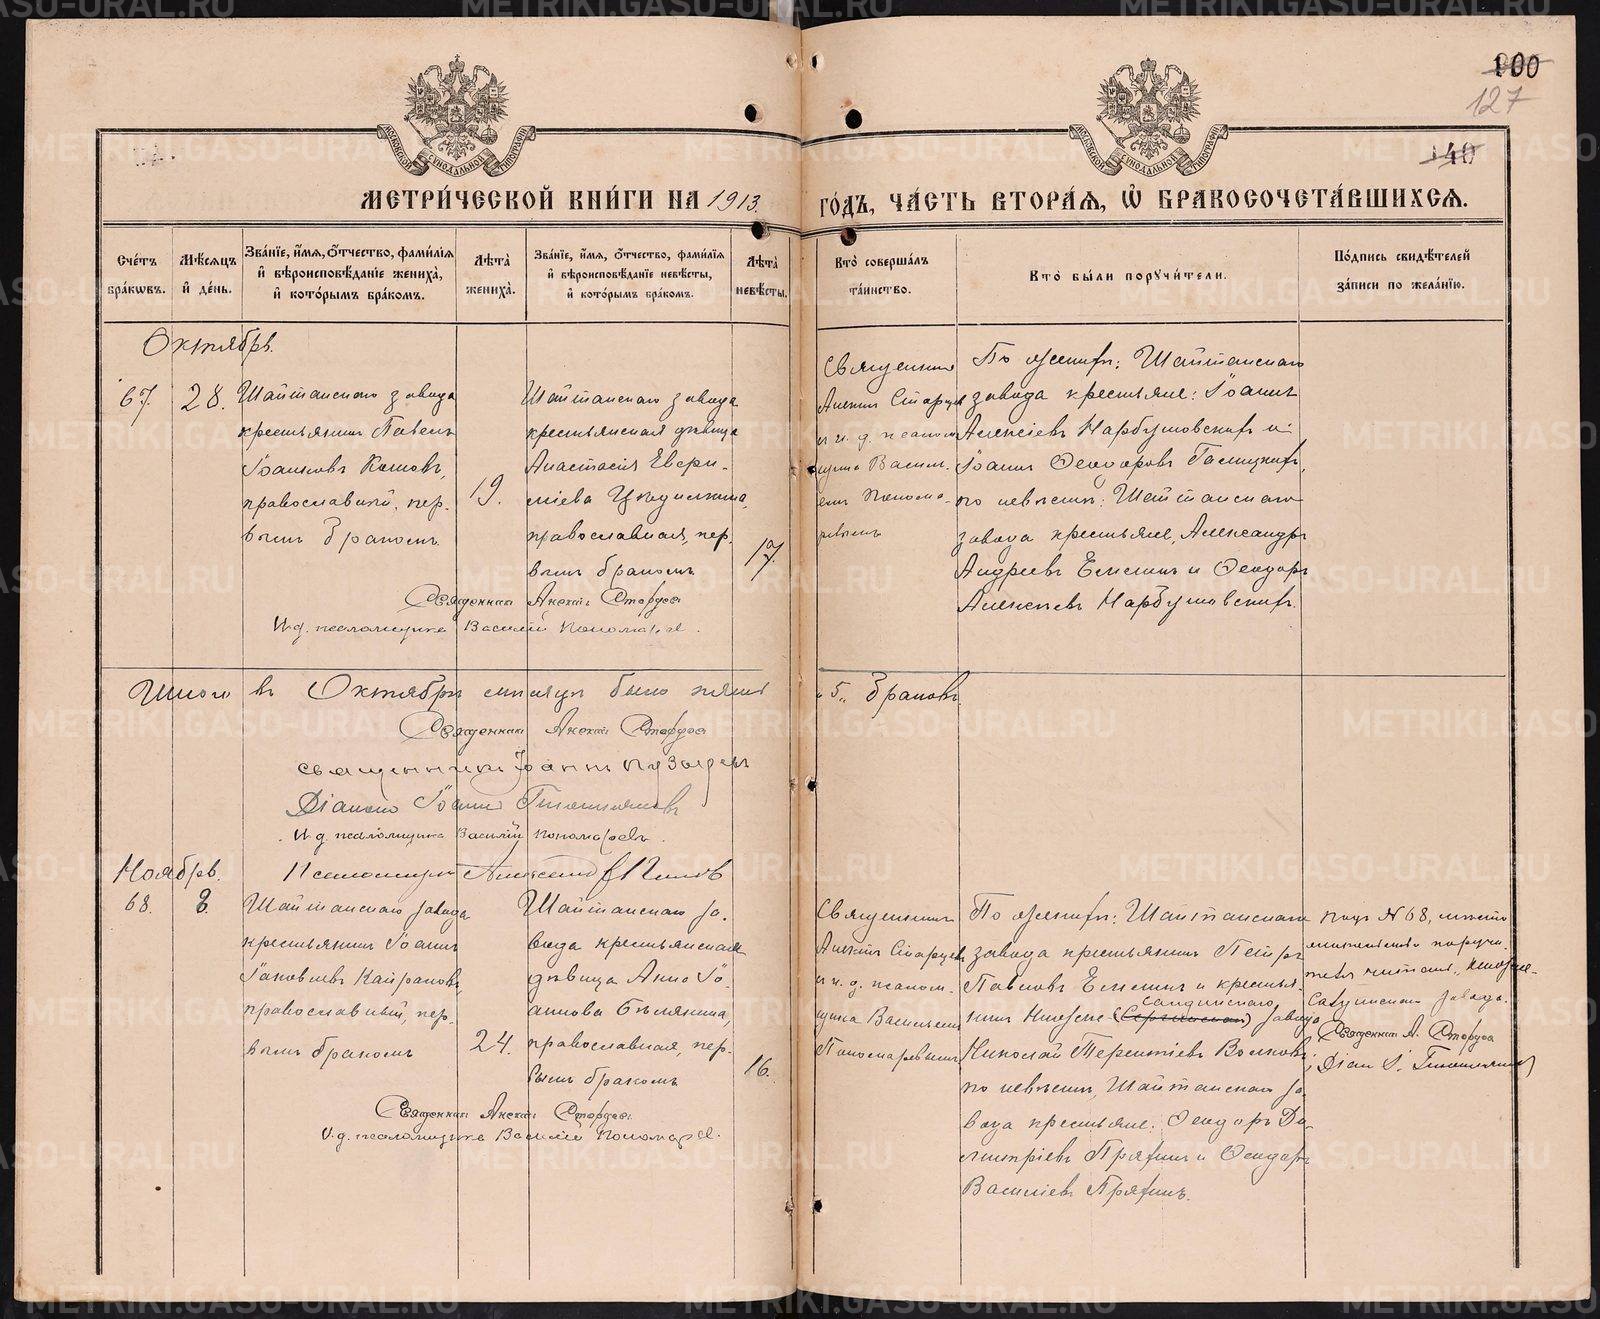 100
127
140
МОСКОВСКОЙ СѴНОДАЛЬНОЙ ТИПОГРАФІИ
МОСКОВСКОЙ СѴНОДАЛЬНОЙ ТИПОГРАФІИ
МЕТРИ́ЧЕСКОЙ КНИ́ГИ НА 1913
ГО́ДЪ, ЧА́СТЬ ВТОРА́Ѧ, Ѡ БРАКОСОЧЕТА́ВШИХСѦ.
Сче́тъ бра́кѡвъ.
Мѣ́сѧцъ и де́нь.
Зва́нїе, и́мѧ, ѻ́тчество, фами́лїѧ и вѣроисповѣ́данїе жениха̀, и кото́рымъ бра́комъ.
Лѣта̀ жениха̀.
Зва́нїе, и́мѧ, ѻ́тчество, фами́лїѧ и вѣроисповѣ́данїе невѣ́сты, и кото́рымъ бра́комъ.
Лѣта̀ невѣ́сты.
Кто̀ соверша́лъ та́инство.
Кто̀ бы́ли порꙋчи́тели.
По́дпись свидѣ́телей за́писи по жела́нїю.
Октябрь.
67.
28.
Шайтанскаго завода
крестьянинъ Павелъ
Іоанновъ
православный, пер-
вымъ бракомъ
19.
Шайтанскаго завода
крестьянская дѣвица
Анастасія Евери-
міева
православная, пер-
вымъ бракомъ
17.
Священникъ
Алексій Старцевъ
и и. д. псалом-
щика Васил-
емъ Понома-
ревымъ
По женихѣ: Шайтанскаго
завода крестьяне: Іоаннъ
Алексіевъ Нарбутовскихъ и
Іоаннъ Ѳеодоровъ Галицкихъ,
по невѣстѣ: Шайтанскаго
завода крестьяне, Александръ
Андреевъ Емелинъ и Ѳеодоръ
Алексіевъ Нарбутовскихъ.
Священникъ Алексій Старцевъ
И. д. псаломщика Василій Пономаревъ.
Итого въ Октябрѣ мѣсяцѣ было пять
„5„ браковъ
Священникъ Алексій Старцевъ
Священникъ Іоаннъ
Діаконъ Іоаннъ
И. д. псаломщика Василій Пономаревъ.
Псаломщикъ
Ноябрь.
68.
8.
Шайтанскаго завода
крестьянинъ Іоаннъ
Іаковлевъ Кайгановъ,
православный, пер-
вымъ бракомъ
24.
Шайтанскаго за-
вода крестьянская
дѣвица Анна Іо-
аннова Бѣлякина,
православная, пер-
вымъ бракомъ
16.
Священникъ
Алексій Старцевъ
и и. д. псалом-
щика Васильемъ
Пономаревымъ
По женихѣ: Шайтанскаго
завода крестьянинъ Петръ
Павловъ Емелинъ и крестья-
салдинскаго
нинъ Нижне (Сергинскаго) завода
Николай Терентіевъ Волковъ;
по невѣстѣ, Шайтанскаго за-
вода крестьяне: Ѳеодоръ Ди-
митріевъ Пряхинъ и Ѳеодоръ
Василіевъ Пряхинъ.
подъ № 68, мѣсто
жительство поручи-
теля читать „Нижне-
Салдинскаго завода.
Священникъ А. Старцевъ
Діак. І.
Священникъ Алексій Старцевъ
И. д. псаломщика Василій Пономаревъ.